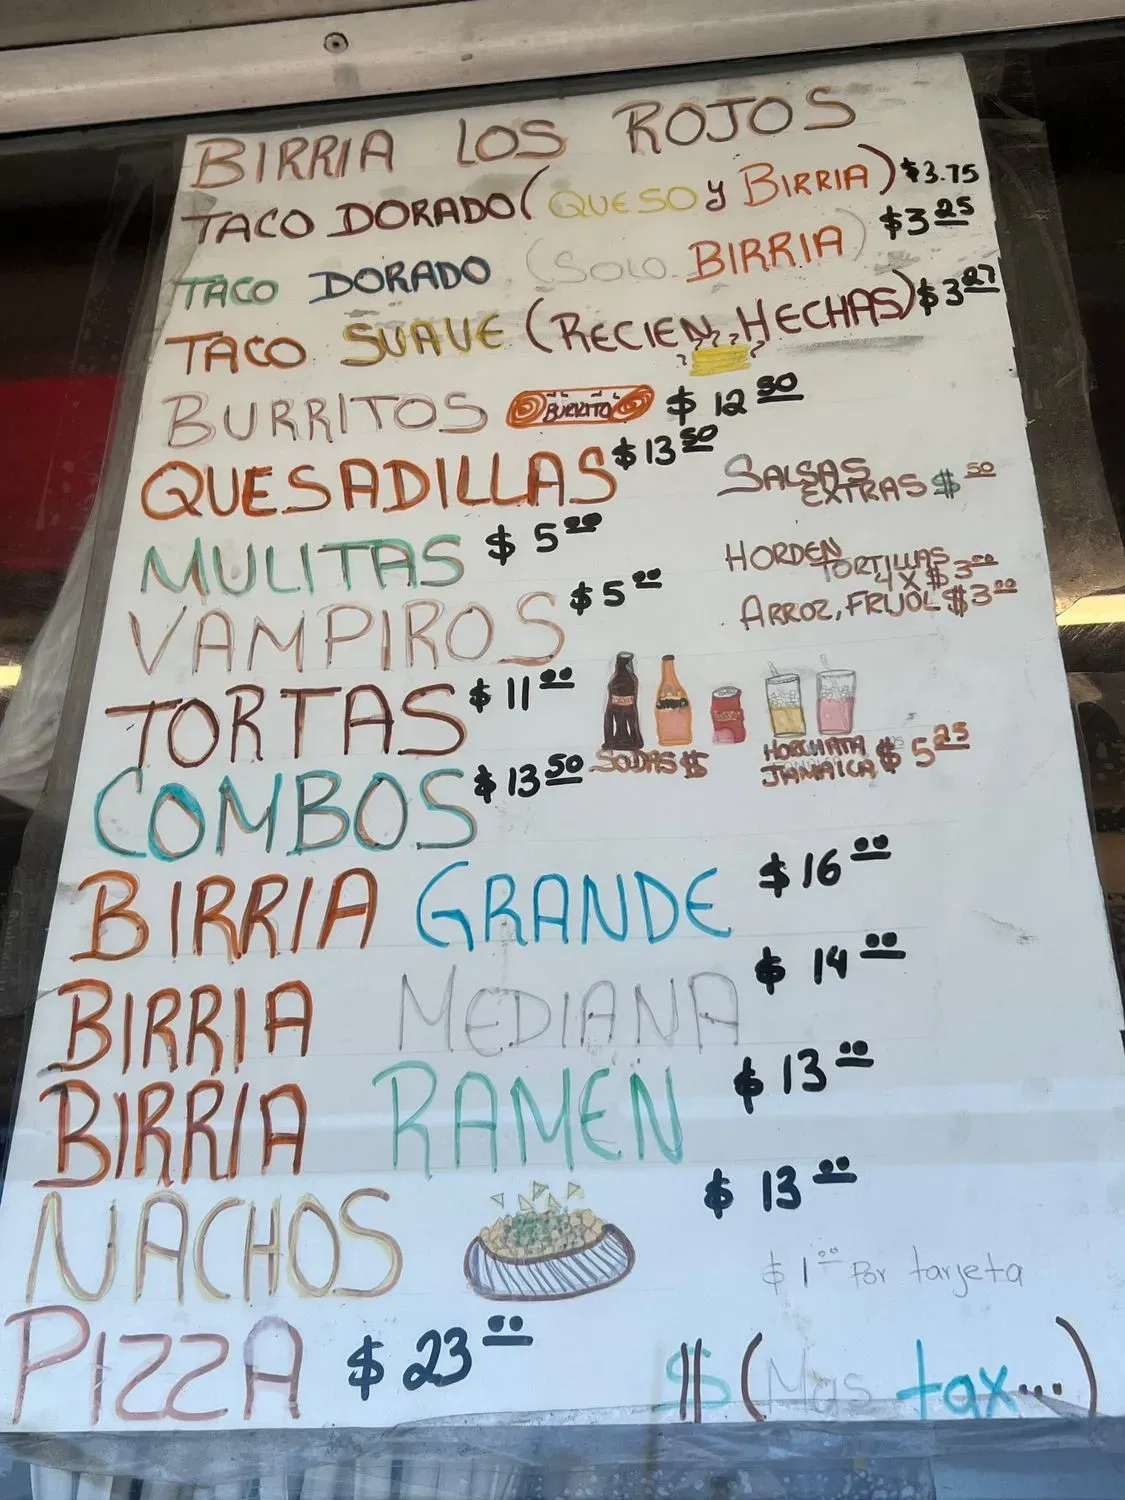 BIRRIA LOS ROJOS
TACO DORADO (QUESO y BIRRIA) $3.75
TACO DORADO (SOLO BIRRIA) $3 25
TACO SUAVE (RECIEN HECHAS) $3 27
BURRITOS BURRITO $ 12 50
QUESADILLAS $13 50
SALSAS
EXTRAS $ 50
MULITAS $ 5 00
HORDEN
TORTILLAS
4 X $3 00
VAMPIROS $5 00
ARROZ, FRIJOL $3 00
TORTAS $ 11 00
SODAS $
HORCHATA
JAMAICA $ 5 25
COMBOS $13 50
BIRRIA GRANDE $16 00
BIRRIA MEDIANA $ 14 00
BIRRIA RAMEN $13 00
NACHOS $ 13 00
$ 1 00 Por tarjeta
PIZZA $ 23 00
$ (Mas tax...)